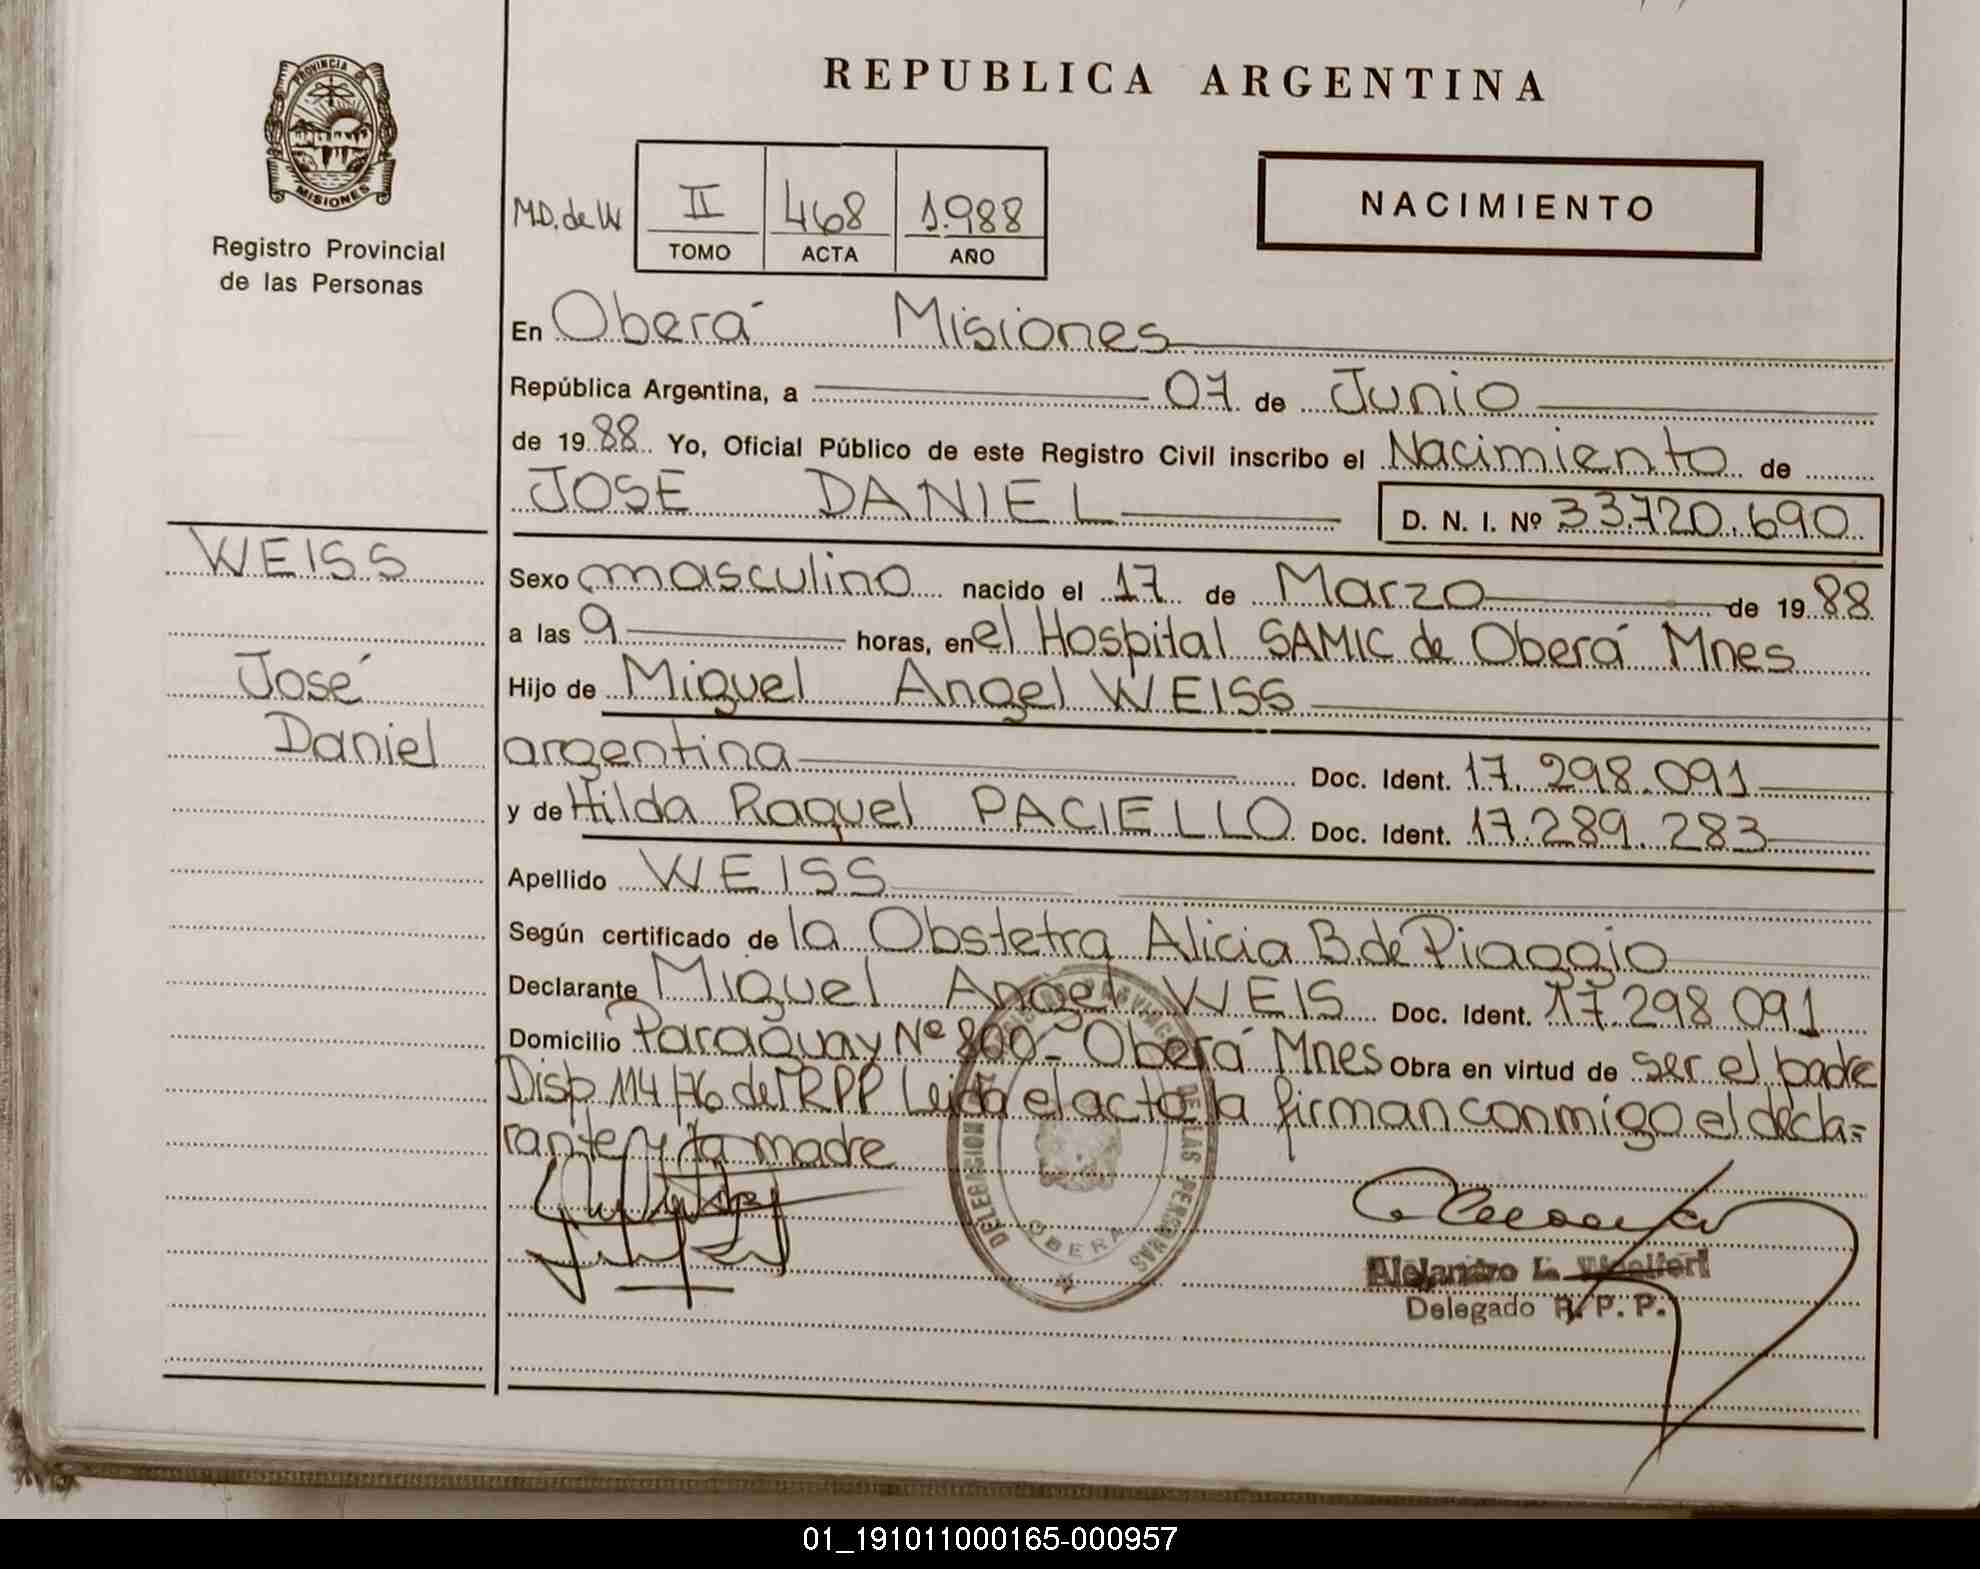 REPUBLICA ARGENTINA
PROVINCIA DE
MISIONES
Registro Provincial
de las Personas
M.D. de W
II 468 1.988
TOMO ACTA AÑO
NACIMIENTO
En Oberá Misiones
República Argentina, a 07 de Junio
de 1988 Yo, Oficial Público de este Registro Civil inscribo el Nacimiento de
JOSE DANIEL D. N. I. Nº 33.720.690
WEISS
José
Daniel
Sexo masculino nacido el 17 de Marzo de 1988
a las 9 horas, en el Hospital SAMIC de Oberá Mnes
Hijo de Miguel Angel WEISS
argentina Doc. Ident. 17.298.091
y de Hilda Raquel PACIELLO Doc. Ident. 17.289.283
Apellido WEISS
Según certificado de la Obstetra Alicia B. de Piaggio
Declarante Miguel Angel WEIS Doc. Ident. 17.298 091
Domicilio Paraguay Nº 800- Oberá Mnes Obra en virtud de ser el padre
Disp 114/76 del RPP Leída el acta la firman conmigo el decla=
rante y la madre
DELEGACION DE LAS PERSONAS
OBERA
Alejandro L.
Delegado R. P. P.
01_191011000165-000957